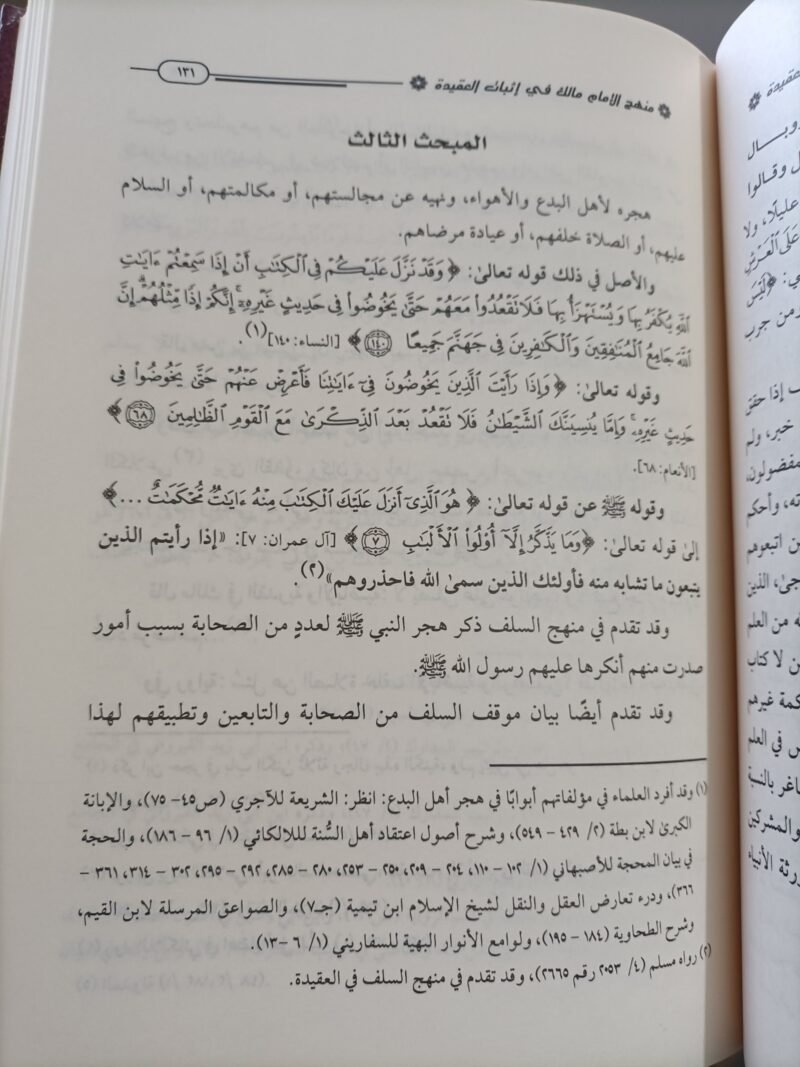 منهج الإمام مالك في إثبات العقيدة
١٣١
المبحث الثالث
هجره لأهل البدع والأهواء، ونهيه عن مجالستهم، أو مكالمتهم، أو السلام
عليهم، أو الصلاة خلفهم، أو عيادة مرضاهم.
والأصل في ذلك قوله تعالىٰ: ﴿ وَقَدْ نَزَّلَ عَلَيْكُمْ فِي الْكِتَابِ أَنْ إِذَا سَمِعْتُمْ ءَايَاتِ
اللَّهِ يُكْفَرُ بِهَا وَيُسْتَهْزَأُ بِهَا فَلَا تَقْعُدُوا مَعَهُمْ حَتَّىٰ يَخُوضُوا فِي حَدِيثٍ غَيْرِهِ ۚ إِنَّكُمْ إِذًا مِّثْلُهُمْ ۗ إِنَّ
اللَّهَ جَامِعُ الْمُنَافِقِينَ وَالْكَافِرِينَ فِي جَهَنَّمَ جَمِيعًا ١٤٠ ﴾ [النساء: ١٤٠](١).
وقوله تعالىٰ: ﴿ وَإِذَا رَأَيْتَ الَّذِينَ يَخُوضُونَ فِي ءَايَاتِنَا فَأَعْرِضْ عَنْهُمْ حَتَّىٰ يَخُوضُوا فِي
حَدِيثٍ غَيْرِهِ ۚ وَإِمَّا يُنسِيَنَّكَ الشَّيْطَانُ فَلَا تَقْعُدْ بَعْدَ الذِّكْرَىٰ مَعَ الْقَوْمِ الظَّالِمِينَ ٦٨ ﴾
[الأنعام: ٦٨].
وقوله ﷺ عن قوله تعالىٰ: ﴿ هُوَ الَّذِي أَنزَلَ عَلَيْكَ الْكِتَابَ مِنْهُ ءَايَاتٌ مُّحْكَمَاتٌ ... ﴾
إلىٰ قوله تعالىٰ: ﴿ وَمَا يَذَّكَّرُ إِلَّا أُولُوا الْأَلْبَابِ ٧ ﴾ [آل عمران: ٧]: «إذا رأيتم الذين
يتبعون ما تشابه منه فأولئك الذين سمىٰ الله فاحذروهم»(٢).
وقد تقدم في منهج السلف ذكر هجر النبي ﷺ لعددٍ من الصحابة بسبب أمور
صدرت منهم أنكرها عليهم رسول الله ﷺ.
وقد تقدم أيضًا بيان موقف السلف من الصحابة والتابعين وتطبيقهم لهذا
(١) وقد أفرد العلماء في مؤلفاتهم أبوابًا في هجر أهل البدع: انظر: الشريعة للآجري (ص٤٥- ٧٥)، والإبانة
الكبرىٰ لابن بطة (٢/ ٤٢٩ - ٥٤٩)، وشرح أصول اعتقاد أهل السُّنة لللالكائي (١/ ٩٦ - ١٨٦)، والحجة
في بيان المحجة للأصبهاني (١/ ١٠٢ - ١١٠، ٢٠٤ - ٢٠٩، ٢٥٠ - ٢٥٣، ٢٨٠ - ٢٨٥، ٢٩٢ - ٢٩٥، ٣٠٢ - ٣١٤، ٣٦١ -
٣٦٦)، ودرء تعارض العقل والنقل لشيخ الإسلام ابن تيمية (جـ٧)، والصواعق المرسلة لابن القيم،
وشرح الطحاوية (١٨٤ - ١٩٥)، ولوامع الأنوار البهية للسفاريني (١/ ٦ -١٣).
(٢) رواه مسلم (٤/ ٢٠٥٣ رقم ٢٦٦٥)، وقد تقدم في منهج السلف في العقيدة.